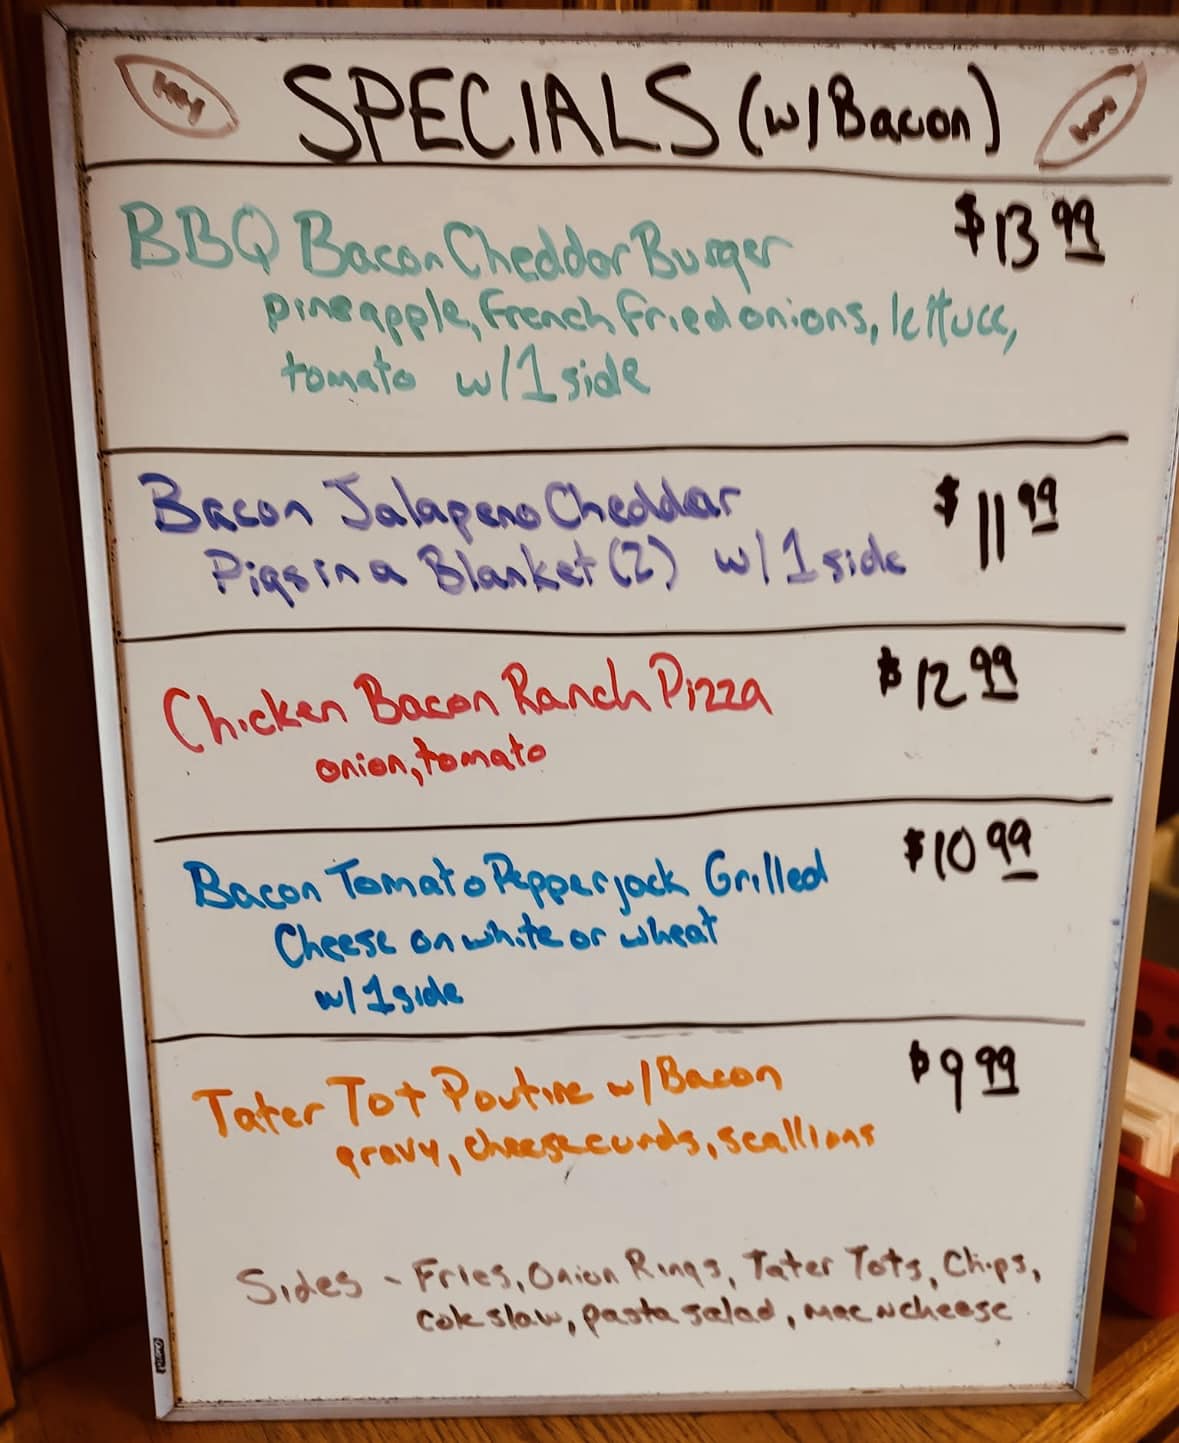 SPECIALS (w/Bacon)
BBQ Bacon Cheddar Burger $13 99
pineapple, French fried onions, lettuce,
tomato w/1 side
Bacon Jalapeno Cheddar $11 99
Pigs in a Blanket (2) w/1 side
Chicken Bacon Ranch Pizza $12 99
onion, tomato
Bacon Tomato Pepperjack Grilled $10 99
Cheese on white or wheat
w/1 side
Tater Tot Poutine w/Bacon $9 99
gravy, cheesecurds, scallions
Sides - Fries, Onion Rings, Tater Tots, Chips,
Coleslaw, pasta salad, Mac N cheese